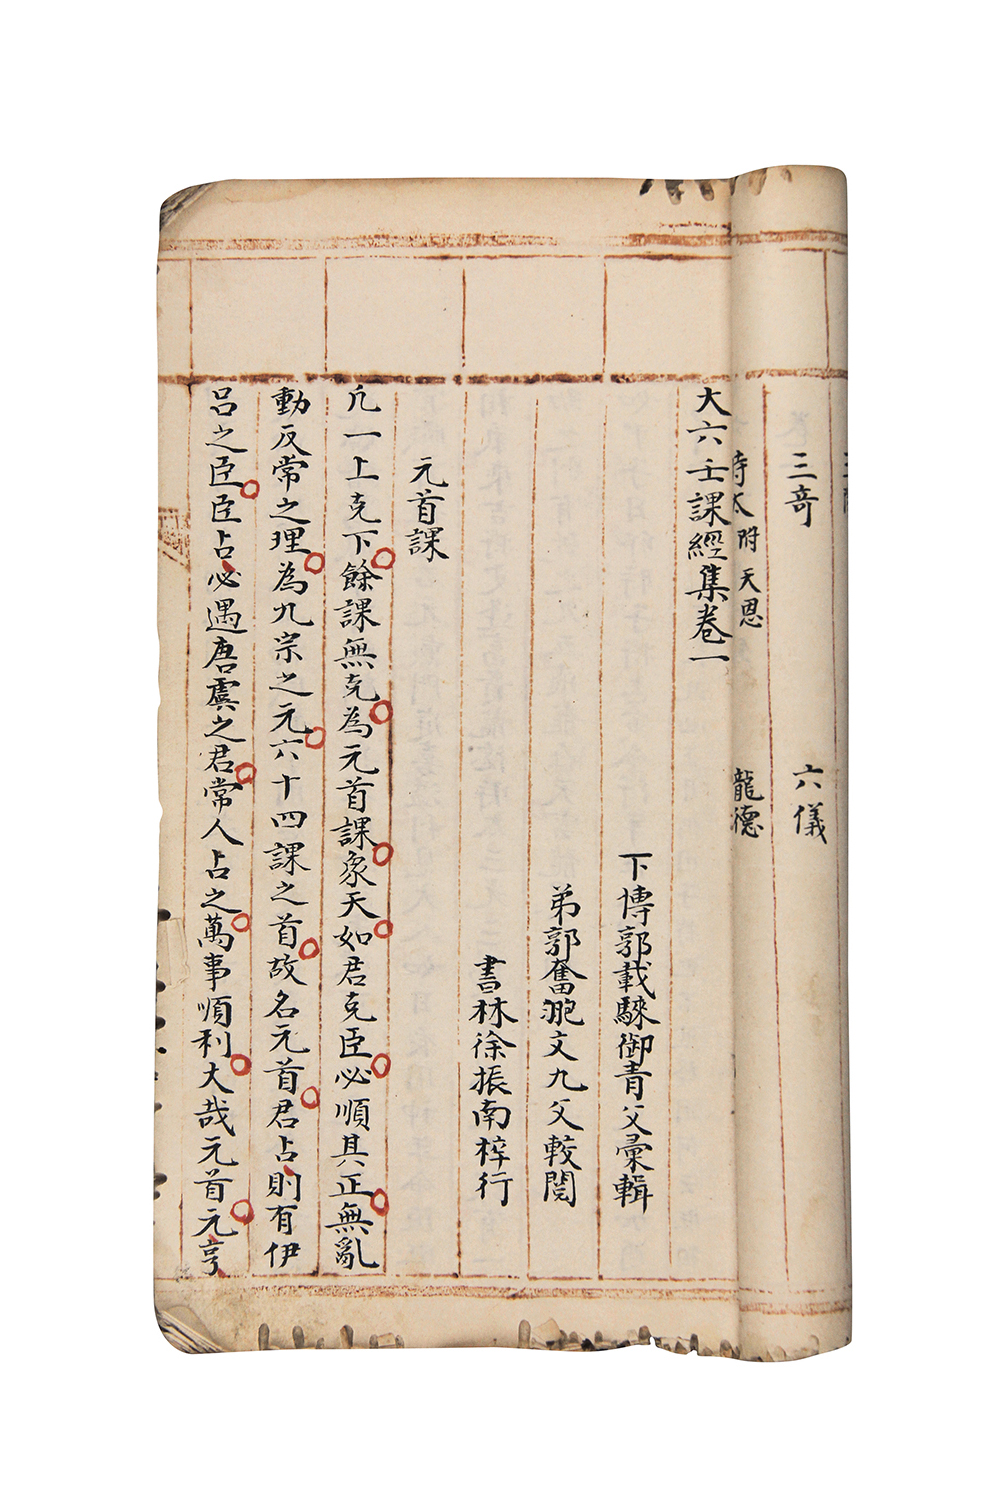 三奇 六儀
時太 附天恩 龍德
大六壬課經集卷一
下博郭載騋御青父彙輯
弟郭奮翀文九父較閱
書林徐振南梓行
元首課
凢一上克下餘課無克為元首課象天如君克臣必順其正無亂
動反常之理為九宗之元六十四課之首故名元首君占則有伊
呂之臣臣占必遇唐虞之君常人占之萬事順利大哉元首元亨